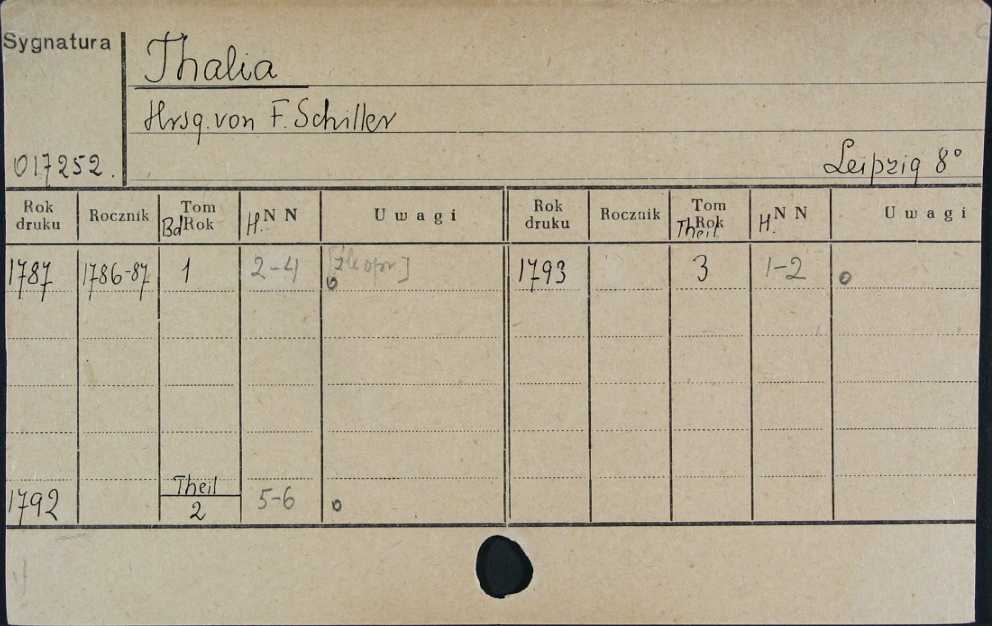 Sygnatura
Thalia
Hrsg. von F. Schiller
017252.
Leipzig 8°
Rok druku Rocznik Tom Bd Rok H. N N Uwagi Rok druku Rocznik Tom Theil Rok H. N N Uwagi
1787 1786-87 1 2-4 1793 3 1-2 o
1792 Theil 2 5-6 o